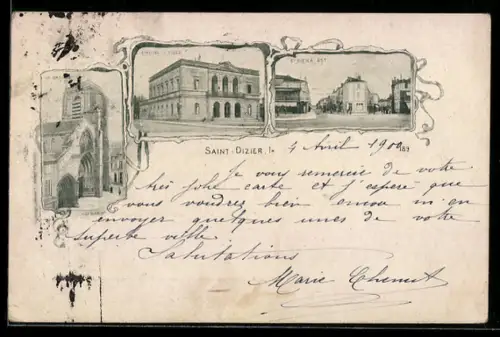 SAINT-DIZIER, le 4 Avril 1900
189
Je vous remercie de votre
très jolie carte et j'espère que
vous voudrez bien encore m'en
envoyer quelques unes de votre
superbe ville
Salutations
Marie